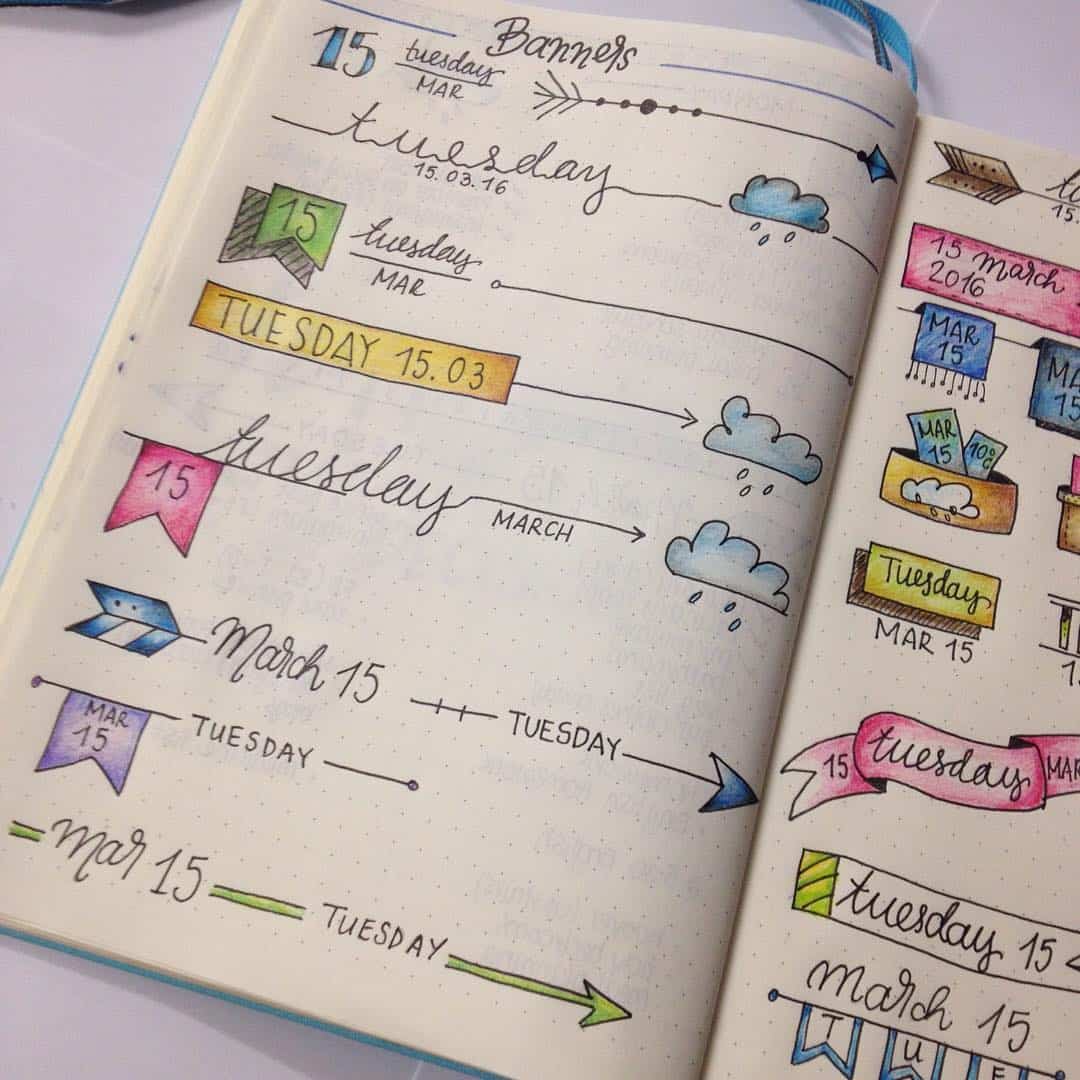 Banners
15 tuesday
MAR
tuesday
15.03.16
15 tuesday
MAR
TUESDAY 15.03
15 tuesday
MARCH
March 15 TUESDAY
MAR
15 TUESDAY
mar 15 TUESDAY
15.
15 march
2016
MAR
15
MA
15
MAR
15
10°C
Tuesday
MAR 15
15 tuesday MAR
tuesday 15
march 15
T U E